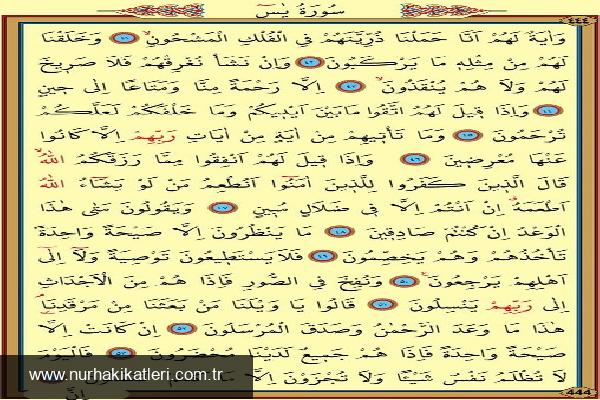 سُورَةُ يٰسٓ
٤٤٤
وَاٰيَةٌ لَهُمْ اَنَّا حَمَلْنَا ذُرِّيَّتَهُمْ فِي الْفُلْكِ الْمَشْحُونِۙ ﴿٤١﴾ وَخَلَقْنَا
لَهُمْ مِنْ مِثْلِهِ مَا يَرْكَبُونَ ﴿٤٢﴾ وَاِنْ نَشَأْ نُغْرِقْهُمْ فَلَا صَرِيخَ
لَهُمْ وَلَا هُمْ يُنْقَذُونَۙ ﴿٤٣﴾ اِلَّا رَحْمَةً مِنَّا وَمَتَاعًا اِلٰى حِينٍ
﴿٤٤﴾ وَاِذَا قِيلَ لَهُمُ اتَّقُوا مَا بَيْنَ اَيْدِيكُمْ وَمَا خَلْفَكُمْ لَعَلَّكُمْ
تُرْحَمُونَ ﴿٤٥﴾ وَمَا تَأْتِيهِمْ مِنْ اٰيَةٍ مِنْ اٰيَاتِ رَبِّهِمْ اِلَّا كَانُوا
عَنْهَا مُعْرِضِينَ ﴿٤٦﴾ وَاِذَا قِيلَ لَهُمْ اَنْفِقُوا مِمَّا رَزَقَكُمُ اللّٰهُۙ
قَالَ الَّذِينَ كَفَرُوا لِلَّذِينَ اٰمَنُٓوا اَنُطْعِمُ مَنْ لَوْ يَشَٓاءُ اللّٰهُ
اَطْعَمَهُۗ اِنْ اَنْتُمْ اِلَّا فِي ضَلَالٍ مُبِينٍ ﴿٤٧﴾ وَيَقُولُونَ مَتٰى هٰذَا
الْوَعْدُ اِنْ كُنْتُمْ صَادِقِينَ ﴿٤٨﴾ مَا يَنْظُرُونَ اِلَّا صَيْحَةً وَاحِدَةً
تَأْخُذُهُمْ وَهُمْ يَخِصِّمُونَ ﴿٤٩﴾ فَلَا يَسْتَطِيعُونَ تَوْصِيَةً وَلَٓا اِلٰٓى
اَهْلِهِمْ يَرْجِعُونَ۟ ﴿٥٠﴾ وَنُفِخَ فِي الصُّورِ فَاِذَا هُمْ مِنَ الْاَجْدَاثِ
اِلٰى رَبِّهِمْ يَنْسِلُونَ ﴿٥١﴾ قَالُوا يَا وَيْلَنَا مَنْ بَعَثَنَا مِنْ مَرْقَدِنَاۢ
هٰذَا مَا وَعَدَ الرَّحْمٰنُ وَصَدَقَ الْمُرْسَلُونَ ﴿٥٢﴾ اِنْ كَانَتْ اِلَّا
صَيْحَةً وَاحِدَةً فَاِذَا هُمْ جَمِيعٌ لَدَيْنَا مُحْضَرُونَ ﴿٥٣﴾ فَالْيَوْمَ
لَا تُظْلَمُ نَفْسٌ شَيْـًٔا وَلَا تُجْزَوْنَ اِلَّا مَا
اِنَّ
444
www.nurhakikatleri.com.tr